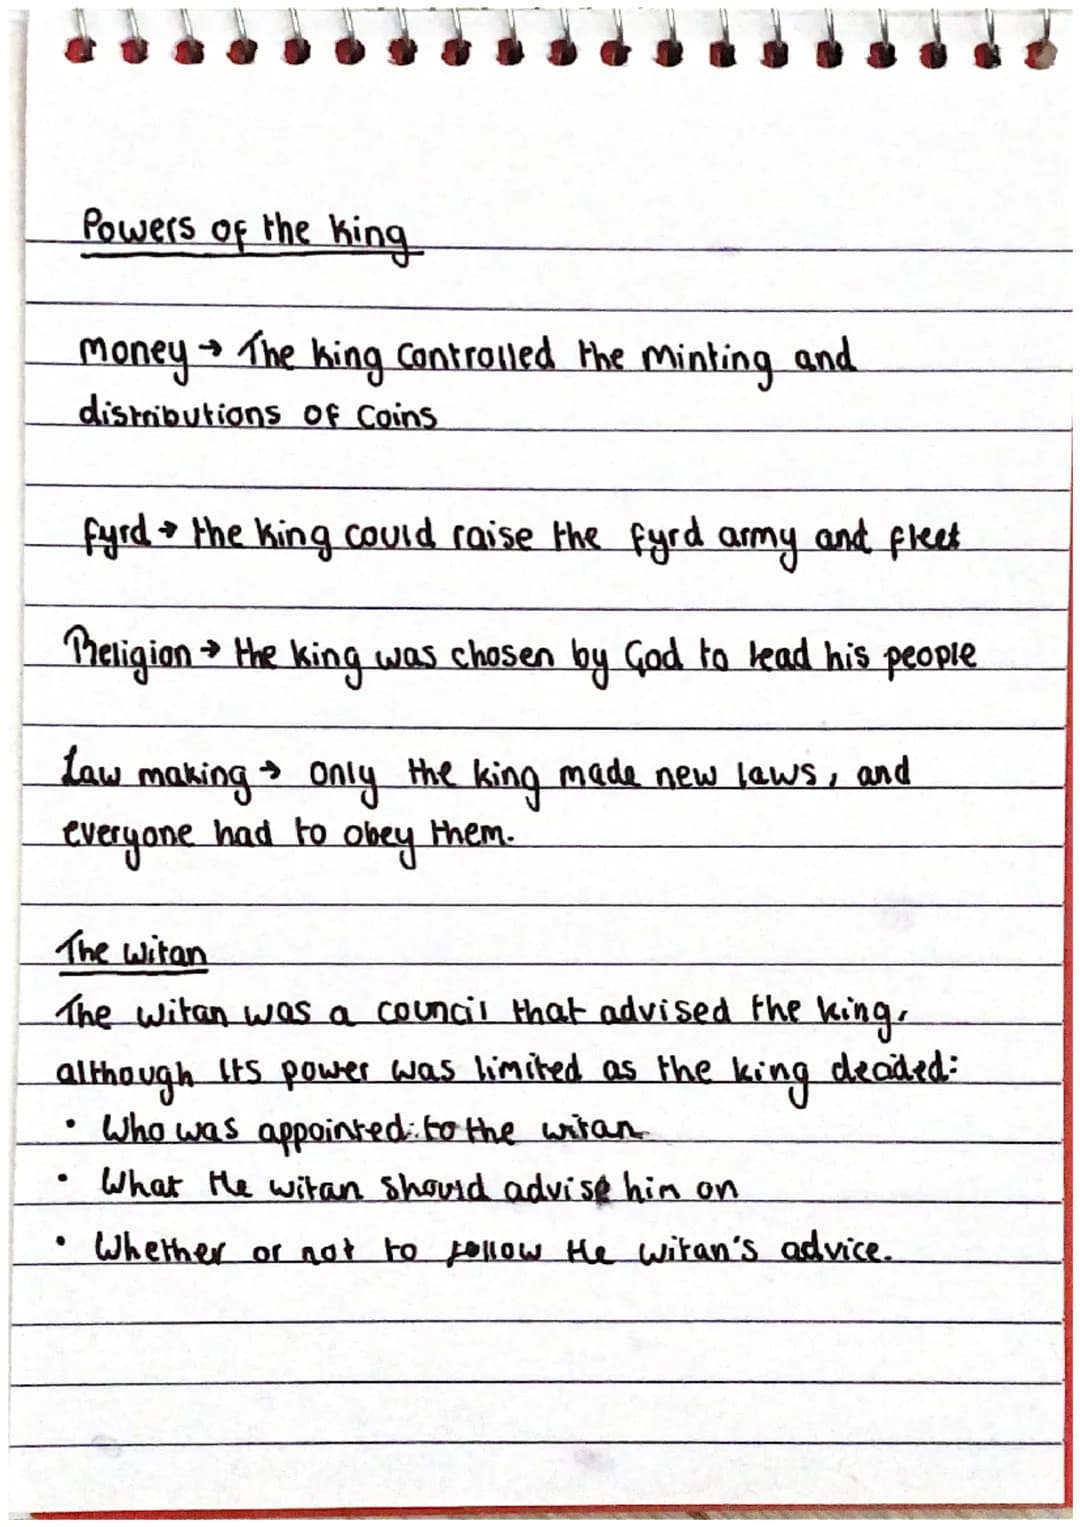 Powers of the King
money → The king controlled the minting and
distributions of coins
fyrd → the king could raise the fyrd army and fleet
Religion → the king was chosen by God to lead his people
Law making → only the king made new laws, and
everyone had to obey them.
The witan
The witan was a council that advised the king,
although its power was limited as the king decided:
• Who was appointed to the witan
• What the witan should advise him on
• Whether or not to follow the witan's advice.